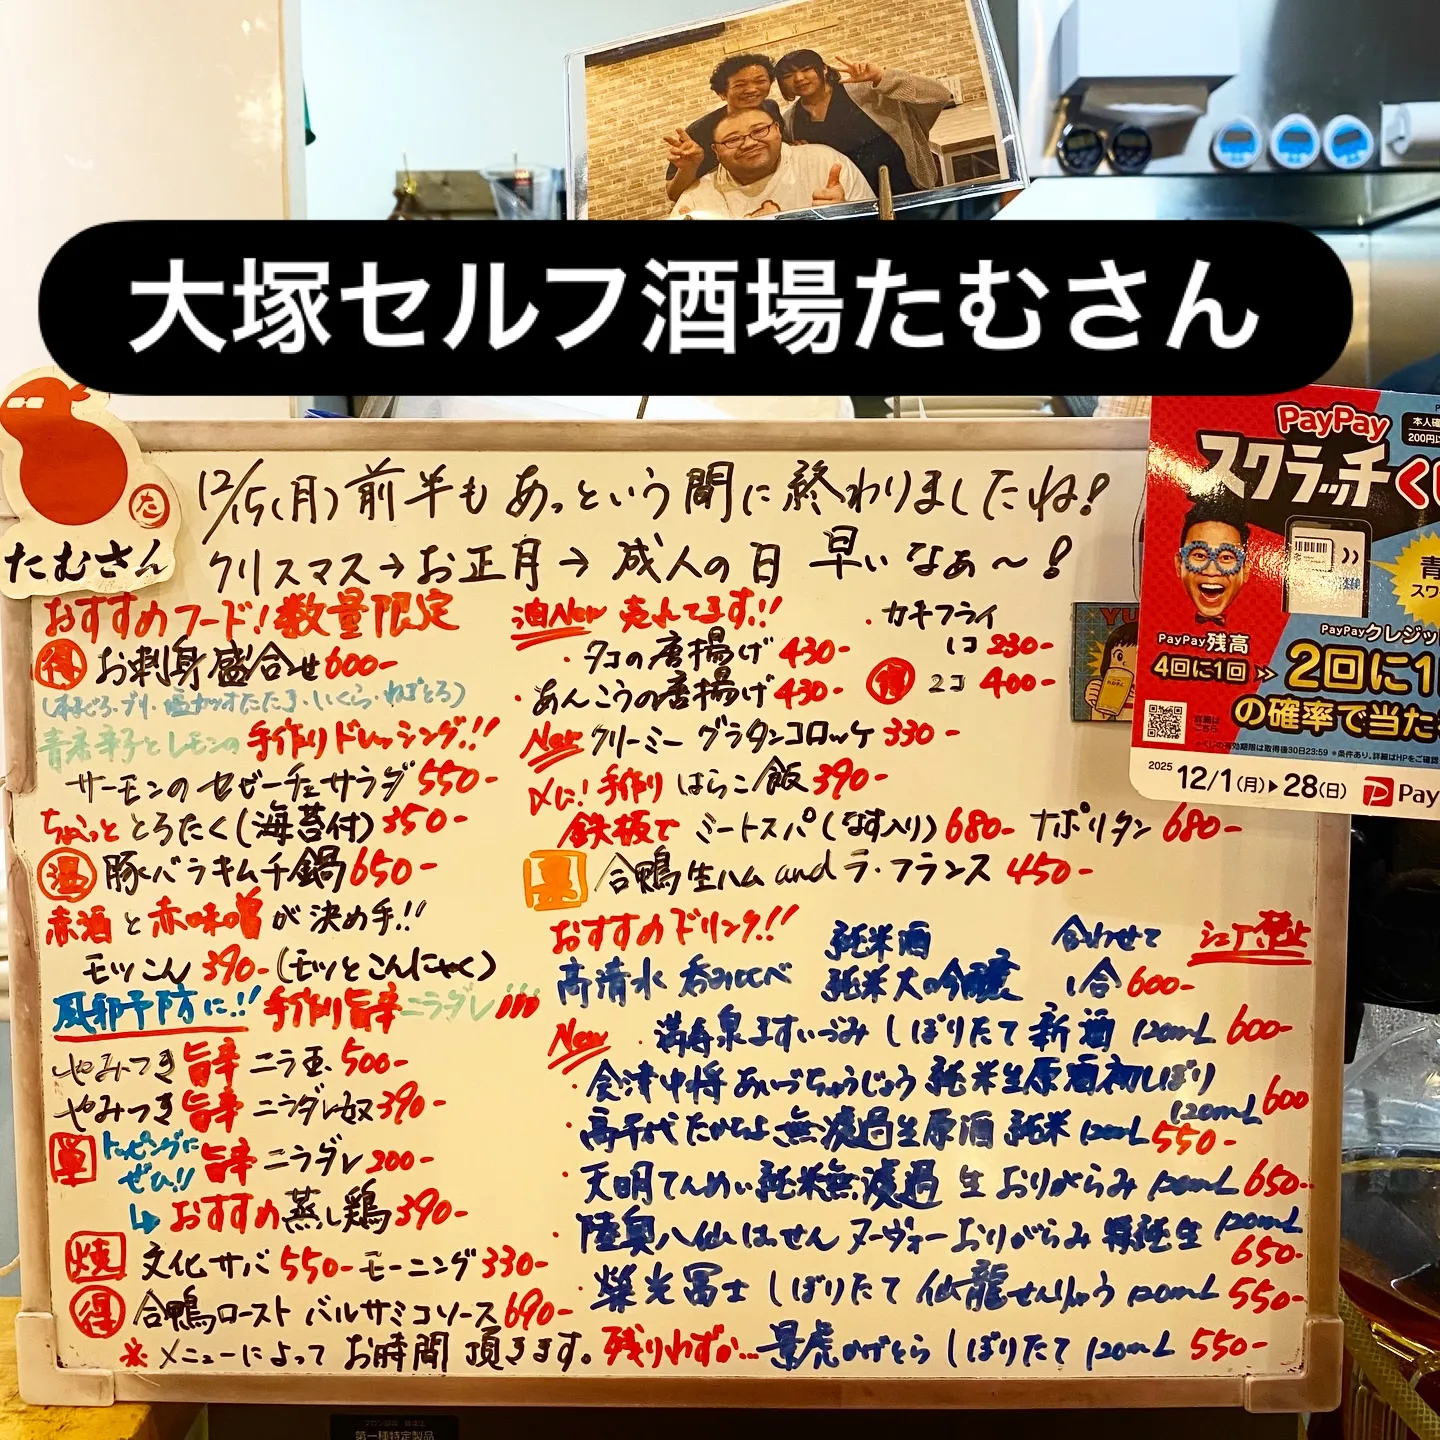 大塚セルフ酒場たむさん
た
たむさん
12/15(月)前半もあっという間に終わりましたね!
クリスマス→お正月→成人の日 早いなぁ〜!
おすすめフード!数量限定
得 お刺身盛合せ600-
(本まぐろ・ブリ・塩カツオたたき・いくら・ねぎとろ)
青唐辛子とレモンの手作りドレッシング!!
サーモンのセビーチェサラダ 550-
ちょこっととろたく(海苔付)350-
温 豚バラキムチ鍋650-
赤酒と赤味噌が決め手!!
モツこん 390-(モツとこんにゃく)
風邪予防に!! 手作り旨辛ニラダレ!!!
やみつき旨辛ニラ玉 500-
やみつき旨辛ニラダレ奴390-
単 トッピングにぜひ!! 旨辛ニラダレ200-
↳おすすめ蒸し鶏390-
焼 文化サバ 550- モーニング330-
得 合鴨ロースト バルサミコソース690-
※メニューによってお時間頂きます。
油New 売れてます!!
・タコの唐揚げ 430-
・あんこうの唐揚げ 430-
・カキフライ
1コ 230-
得 2コ 400-
New クリーミーグラタンコロッケ 330-
〆に!手作りはらこ飯390-
鉄板でミートスパ(なす入り)680- ナポリタン 680-
合鴨生ハム and ラ・フランス 450-
おすすめドリンク!!
高清水 呑み比べ 純米酒 純米大吟醸 合わせて1合600-
New ・満寿泉ますいづみ しぼりたて新酒 120mL 600-
・会津中将あいづちゅうじょう純米生原酒初しぼり 120mL 600
・高千代たかちよ無濾過生原酒純米 120mL 550-
・天明てんめい純米無濾過 生 おりがらみ 120mL 650-
・陸奥八仙はっせん ヌーヴォーおりがらみ 特純生 120mL 650-
・榮光冨士 しぼりたて 仙龍せんりゅう 120mL 550-
残りわずか…景虎かげとら しぼりたて 120mL 550-
PayPay
スクラッチく
PayPay残高
4回に1回
PayPayクレジッ
2回に1
の確率で当た
詳細はこちら
2025 12/1(月)▶28(日)
Pay
YU
第一種特定製品